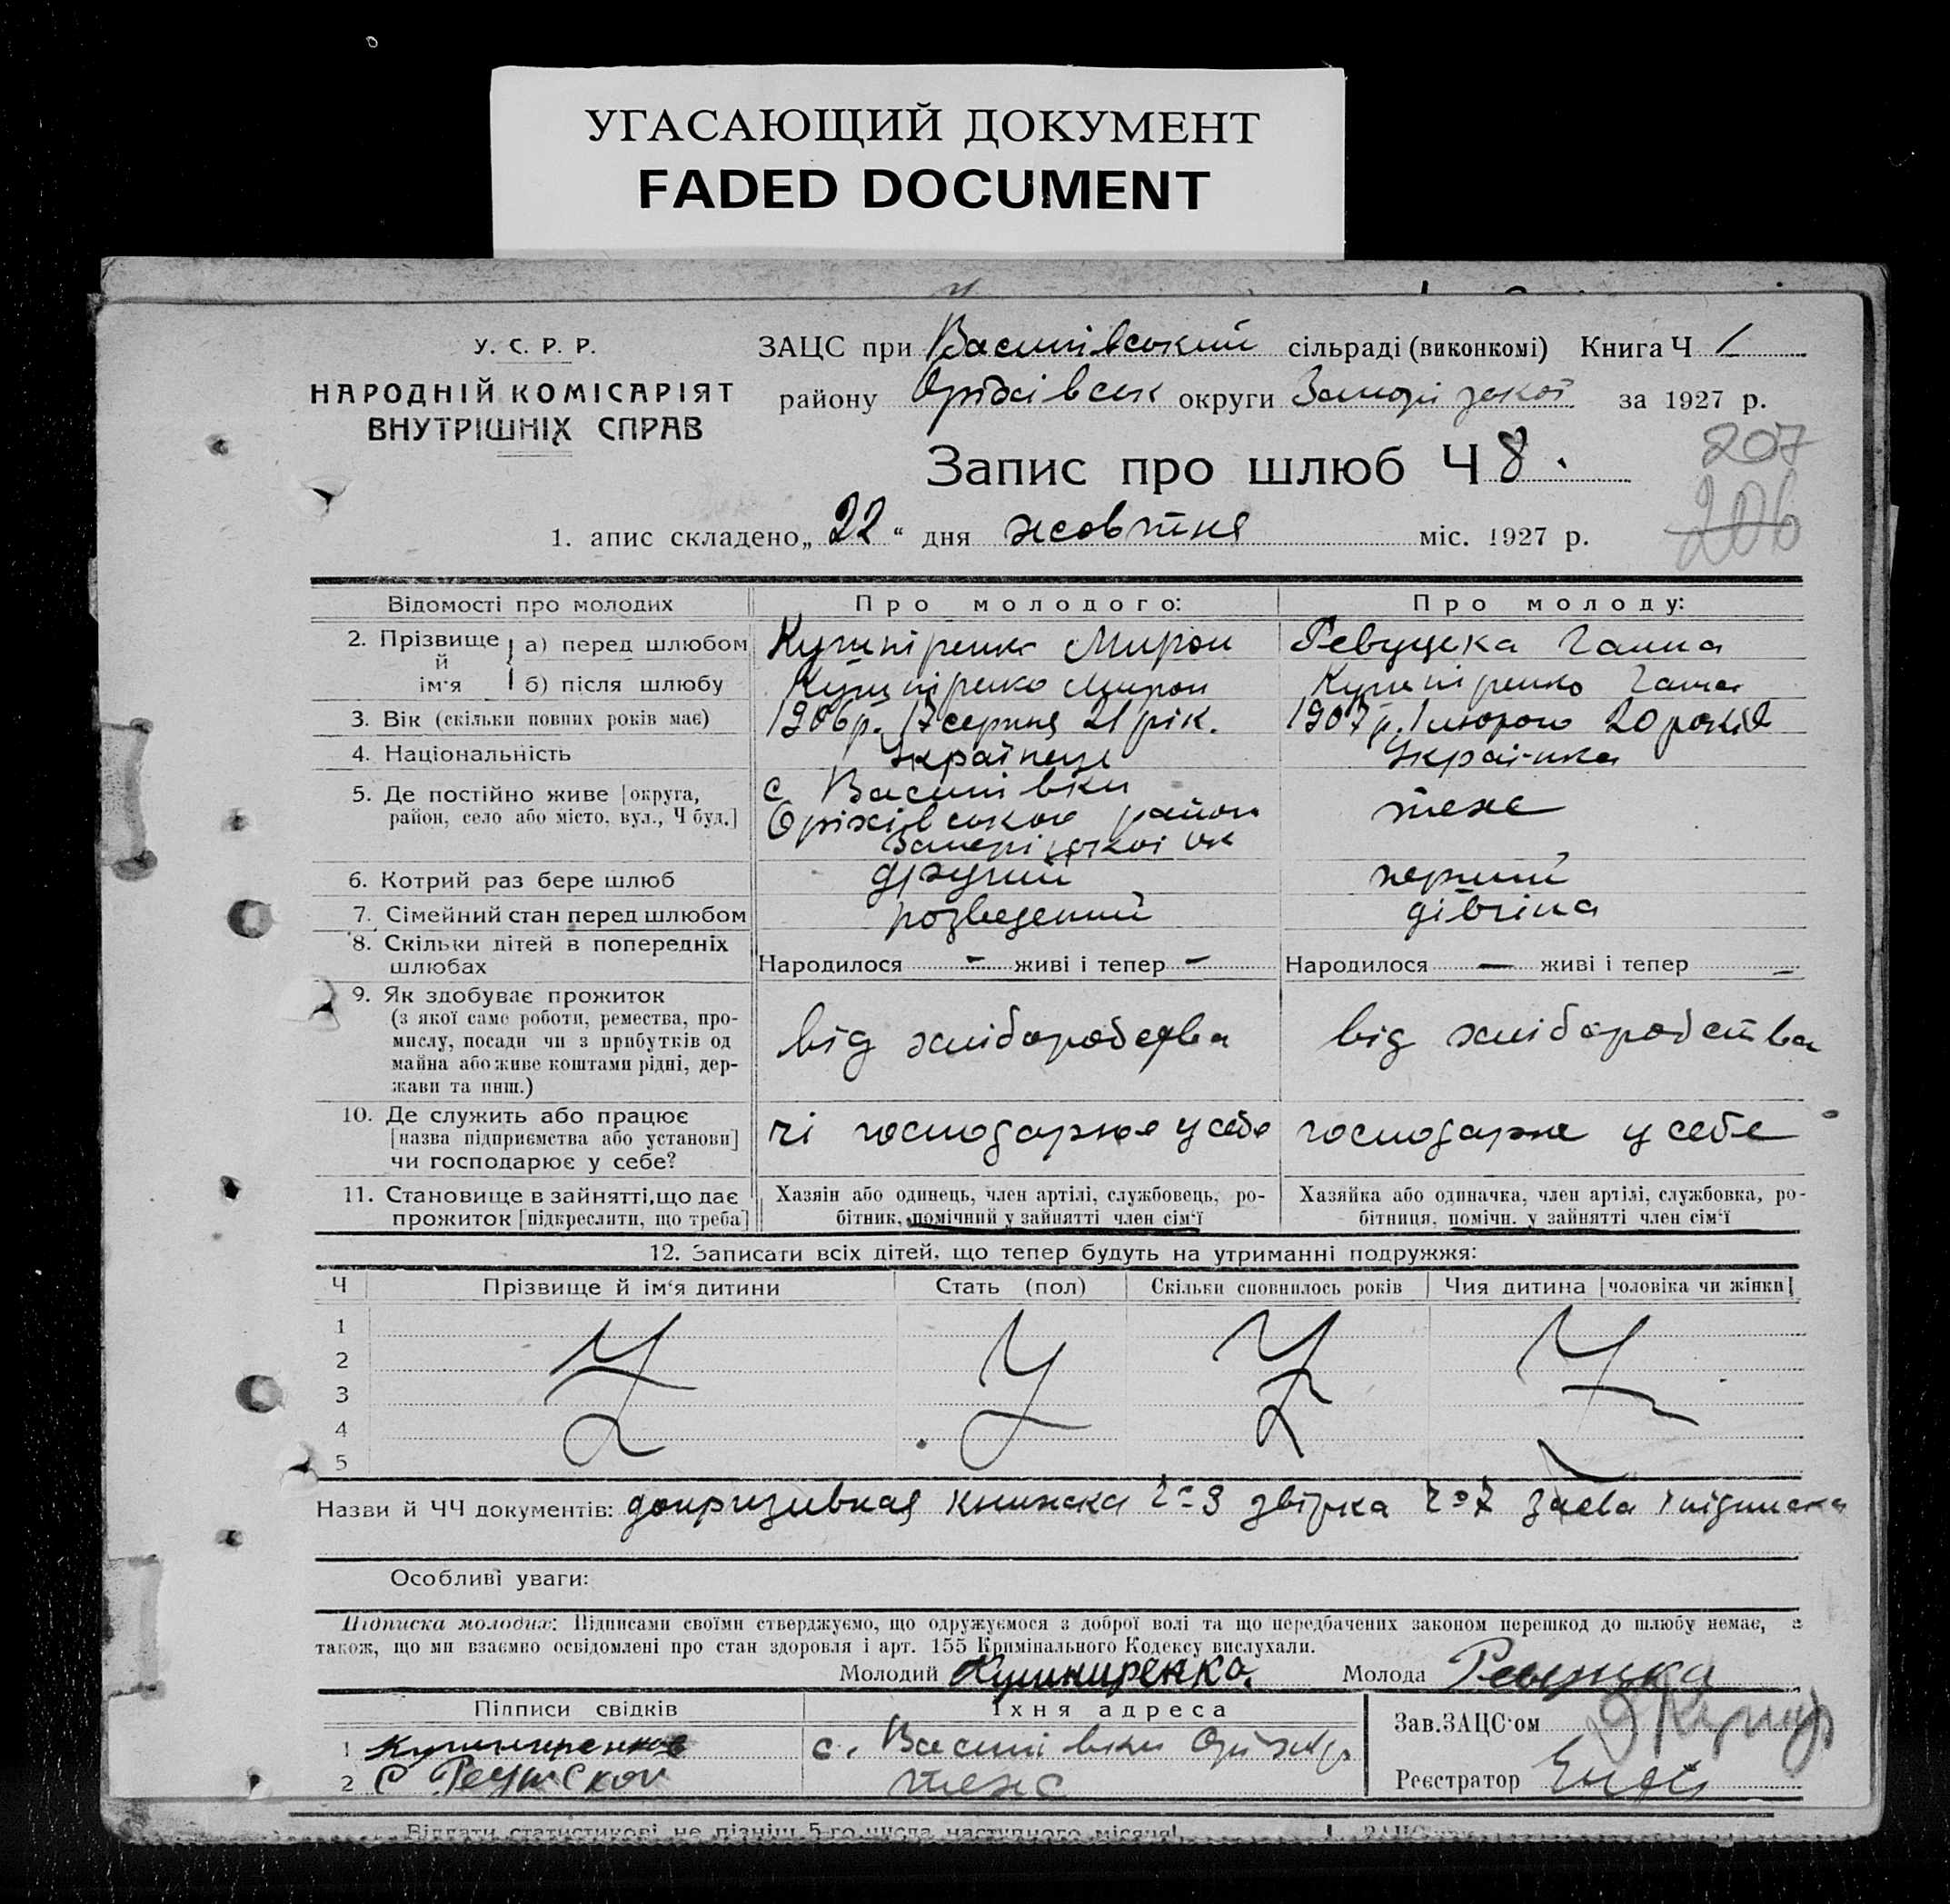 УГАСАЮЩИЙ ДОКУМЕНТ
FADED DOCUMENT
У. С. Р. Р.
НАРОДНІЙ КОМІСАРІЯТ
ВНУТРІШНІХ СПРАВ
ЗАЦС при Василівський сільраді (виконкомі) Книга Ч 1
району Оріхівськ округи Запорізької за 1927 р.
Запис про шлюб Ч 8.
207
206
1. апис складено „22“ дня жовтня міс. 1927 р.
Відомості про молодих Про молодого: Про молоду:
2. Прізвище й ім'я
а) перед шлюбом Кушніренко Мирон Ревуцька Ганна
б) після шлюбу Кушніренко Мирон Кушніренко Ганна
3. Вік (скільки повних років має) 1906р. 17 серпня 21 рік. 1907 р. 1 лютого 20 років
4. Національність Українець Українка
5. Де постійно живе [округа, район, село або місто, вул., Ч буд.] с Василівки теже
Оріхівського район
Запорізької ок
6. Котрий раз бере шлюб другий перший
7. Сімейний стан перед шлюбом розведений дівчина
8. Скільки дітей в попередніх шлюбах Народилося — живі і тепер — Народилося — живі і тепер —
9. Як здобуває прожиток
(з якої саме роботи, ремества, про-
мислу, посади чи з прибутків од
майна або живе коштами рідні, дер-
жави та инш.)
від хліборобства від хліборобства
10. Де служить або працює
[назва підприємства або установи]
чи господарює у себе?
чі господарює у себе господарює у себе
11. Становище в зайнятті, що дає
прожиток [підкреслити, що треба]
Хазяін або одинець, член артілі, службовець, ро-
бітник, помічний у зайнятті член сім'ї
Хазяйка або одиначка, член артілі, службовка, ро-
бітниця, помічн. у зайнятті член сім'ї
12. Записати всіх дітей, що тепер будуть на утриманні подружжя:
Ч Прізвище й ім'я дитини Стать (пол) Скільки сповнилось років Чия дитина [чоловіка чи жінки]
1
2
3
4
5
Назви й ЧЧ документів: допризивная книжка звірка заява підписка
Особливі уваги:
Підписка молодих: Підписами своїми стверджуємо, що одружуємося з доброї волі та що передбачених законом перешкод до шлюбу немає, а
також, що ми взаємно освідомлені про стан здоровля і арт. 155 Кримінального Кодексу вислухали.
Молодий Кушниренко. Молода Ревуцка
Підписи свідків Їхня адреса
Зав.ЗАЦС'ом
1 Кушниренков с. Василівки
2 С теже
Реєстратор
Віддати статистикові не пізніш 5-го числа наступного місяця!